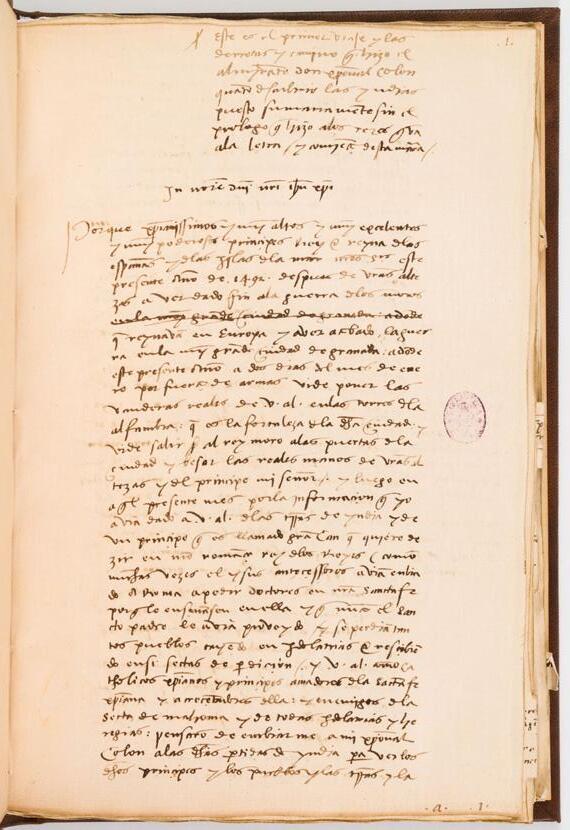 .1.
este es el primer viaje y las
derrotas y camino q̃ hizo el
almirãte don xpoual Colon
quãdo descubrio las yndias
puesto sumariamẽte sin el
prologo q̃ hizo a los reyes q̃ va
a la letra / y comiẽça desta manera /
In noĩe dñi nr̃i ihũ xp̃i
Porque xpianissimos y muy altos y muy exçelentes
y muy poderosos prinçipes Rey e Reyna de las
españas y de las yslas de la mar nr̃os sres este
presente año de .1492. despues de vras alte
zas aver dado fin a la guerra de los moros
en la muy grãde çiudad de granada: adonde
q̃ reynavã en Europa y aver acabado la guer
ra en la muy grãde çiudad de granada: adõde
este presente año a dos dias del mes de ene
ro por fuerça de armas vide poner las
vanderas reales de v. al. en las torres de la
alfambra: q̃ es la fortaleza de la dicha çiudad: y
vide salir al rey moro a las puertas de la
çiudad y besar las reales manos de vras al
tezas y del prinçipe mi señor / y luego en
aq̃l presente mes por la informaçion q̃ yo
avia dado a v. al. de las trr̃as de yndia y de
vn prinçipe q̃ es llamado grã Can q̃ quiere de
zir en nro romãçe rey de los Reyes / como
muchas vezes el y sus anteçessores aviã enbia
do a Roma a pedir doctores en nra sancta fe
porq̃ le enseñasen en ella y q̃ nũca el san
cto padre le avia proveydo y se perdiã tan
tos pueblos cayẽdo en ydolatrias e resçibiẽ
do en si sectas de p̃diçion / y v. al. como ca
tholicos xpianos y prinçipes amadores de la sãcta fe
xpiana y acreçẽtadores della: y enemigos de la
secta de mahoma y de todas ydolatrias y he
regias: pensarõ de enbiarme a mi xpoual
Colon a las dhas p̃tidas de yndia p̃a ver los
dhos prinçipes y los pueblos y las trr̃as y la
.a. .1.